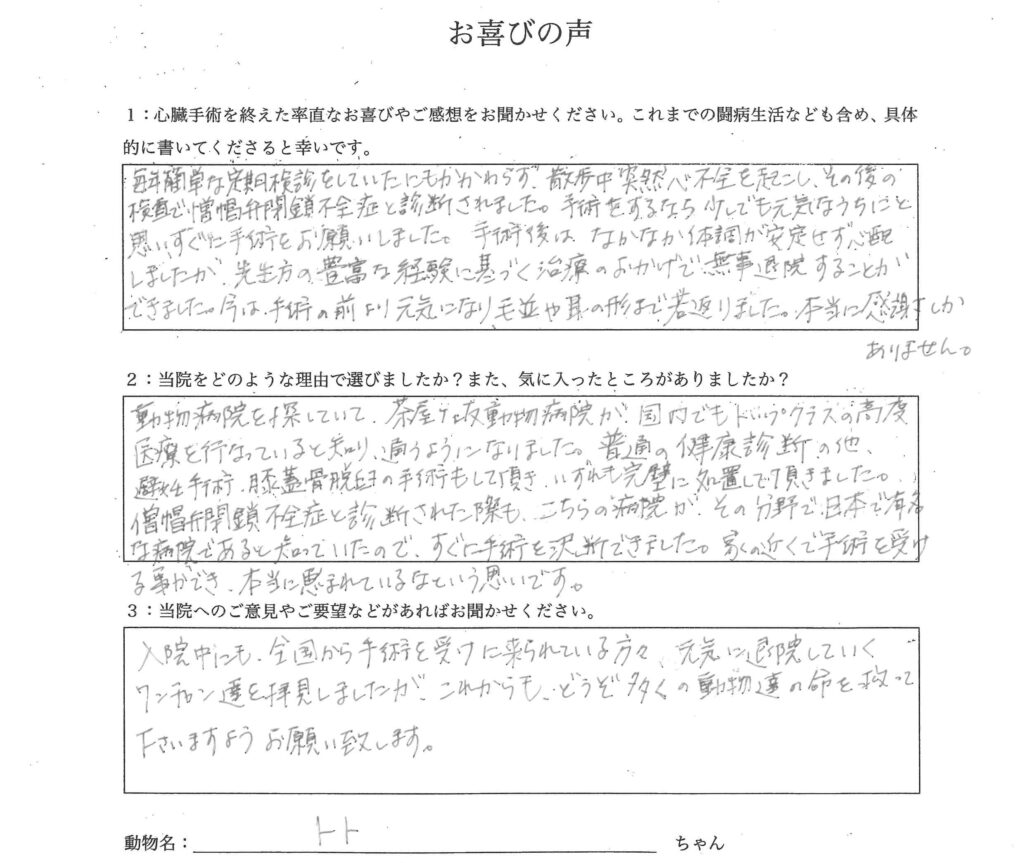 お喜びの声
1：心臓手術を終えた率直なお喜びやご感想をお聞かせください。これまでの闘病生活なども含め、具体
的に書いてくださると幸いです。
毎年簡単な定期検診をしていたにもかかわらず、散歩中突然心不全を起こし、その後の
検査で僧帽弁閉鎖不全症と診断されました。手術をするなら少しでも元気なうちにと
思いすぐに手術をお願いしました。手術後は、なかなか体調が安定せず心配
しましたが、先生方の豊富な経験に基づく治療のおかげで無事退院することが
できました。今は、手術の前より元気になり毛並や耳の形まで若返りました。本当に感謝しか
ありません。
2：当院をどのような理由で選びましたか？また、気に入ったところがありましたか？
動物病院を探していて、茶屋ヶ坂動物病院が、国内でもトップクラスの高度
医療を行なっていると知り、通うようになりました。普通の健康診断の他、
避妊手術、膝蓋骨脱臼の手術もして頂き、いずれも完璧に処置して頂きました。
僧帽弁閉鎖不全症と診断された際も、こちらの病院が、その分野で日本で有名
な病院であると知っていたので、すぐに手術を決断できました。家の近くで手術を受け
る事ができ、本当に恵まれているなという思いです。
3：当院へのご意見やご要望などがあればお聞かせください。
入院中にも、全国から手術を受けに来られている方々、元気に退院していく
ワンチャン達を拝見しましたが、これからも、どうぞ多くの動物達の命を救って
下さいますようお願い致します。
動物名：トト ちゃん